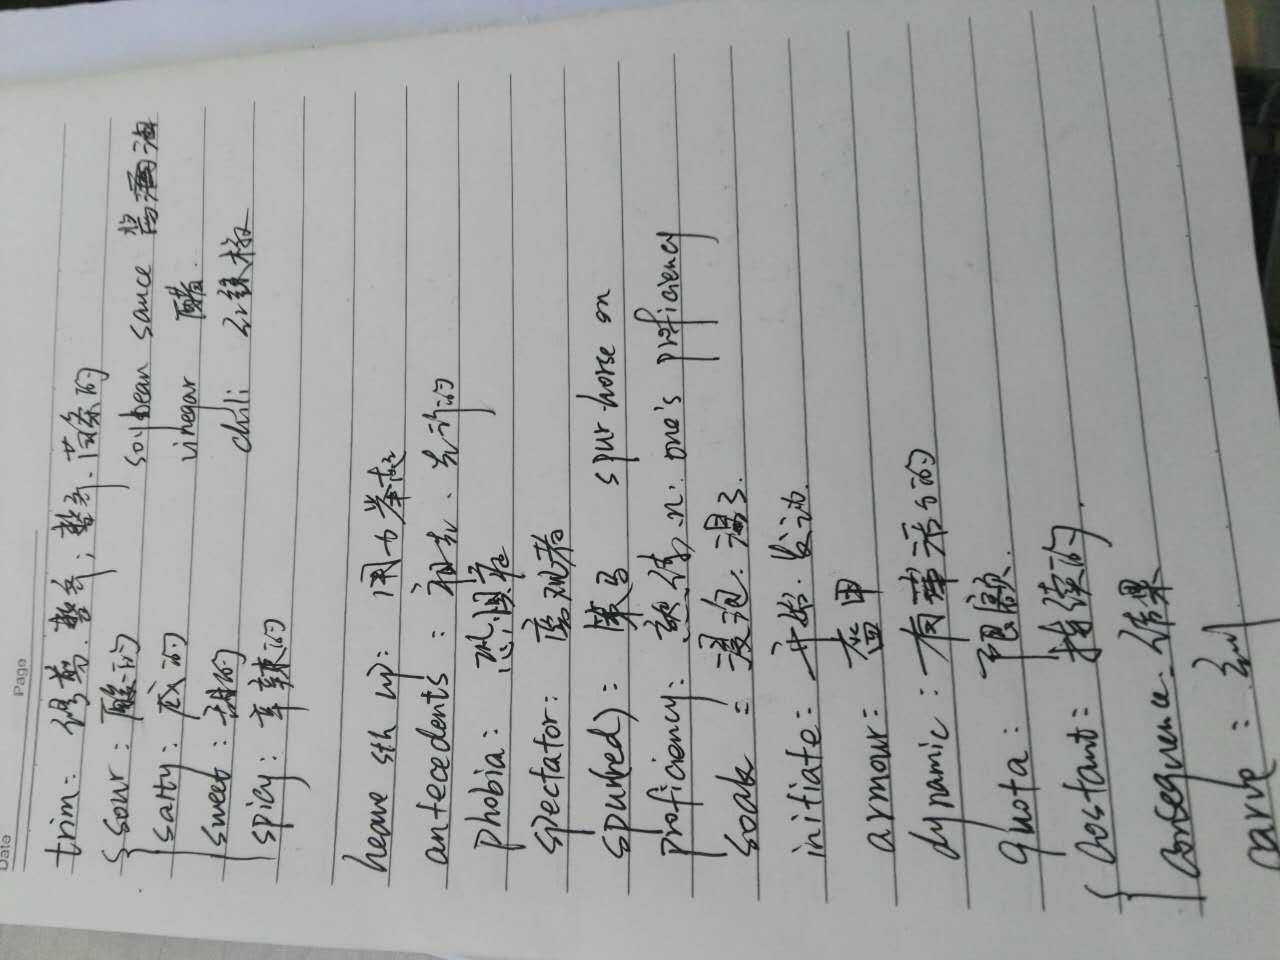 Date Page
trim: 修剪.整齐; 整齐.苗条的
sour: 酸的 soybean sauce 酱油
salty: 咸的 vinegar 醋.
sweet: 甜的 chili 红辣椒
spicy: 辛辣的
heave sth up: 用力举起
antecedents: 祖先.先前的
phobia: 恐惧症
spectator: 旁观者
spured): 策马 spur horse on
proficiency: 熟练 n. one's proficiency
soak = 浸泡.湿了.
initiate: 开始.发动.
armour: 盔甲
dynamic: 有活力的
quota: 限额.
costant: 持续的.
consequence. 结果
carve: